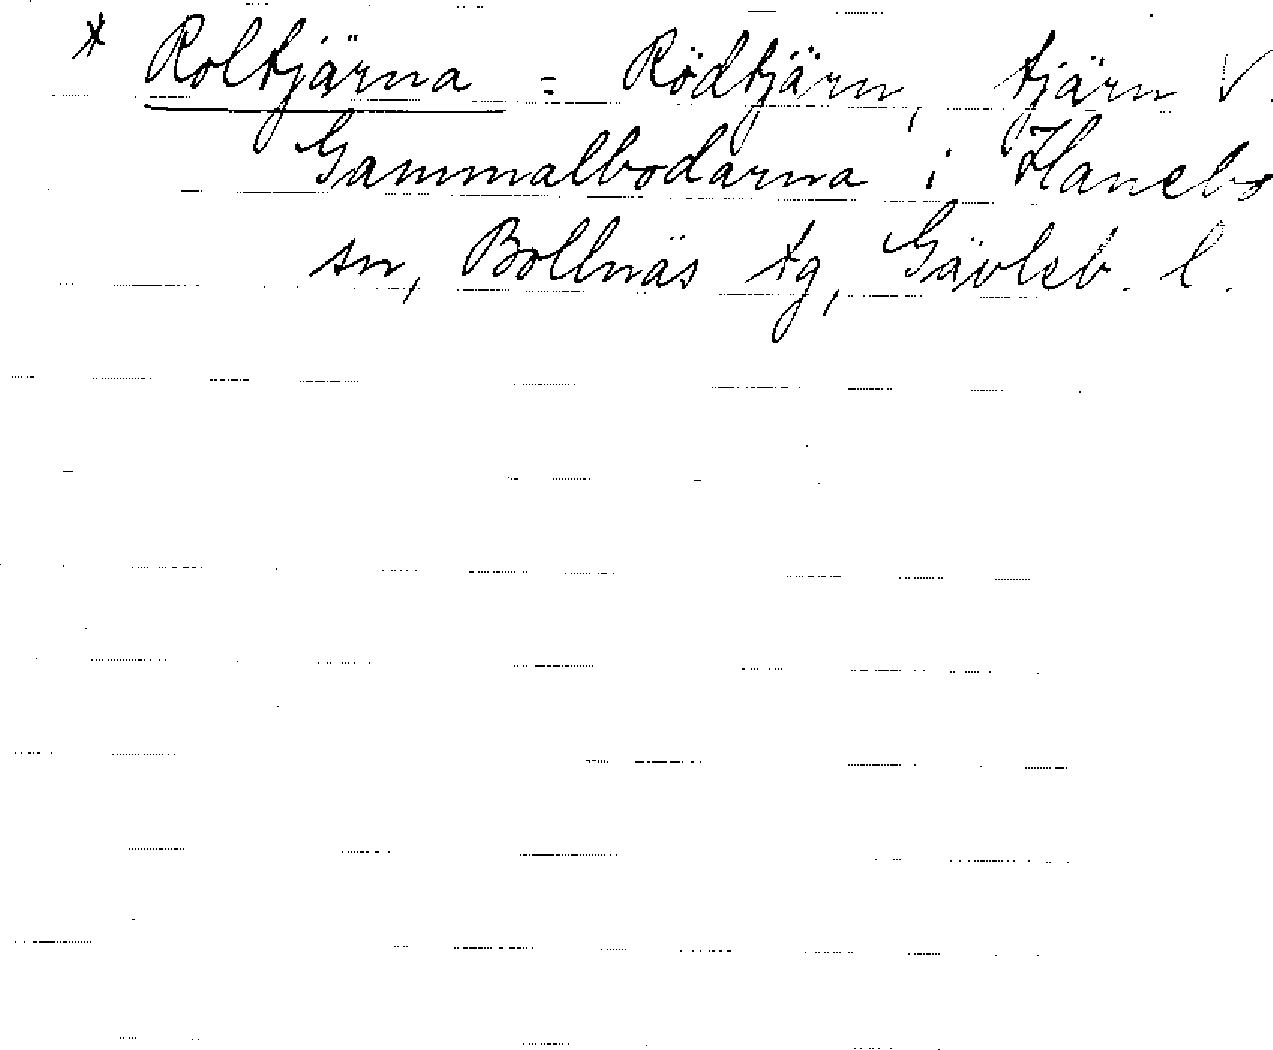 * Roltjärna = Rödtjärn, tjärn V.
Gammalbodarna i Hanebo
sn, Bollnäs tg, Gävleb. l.